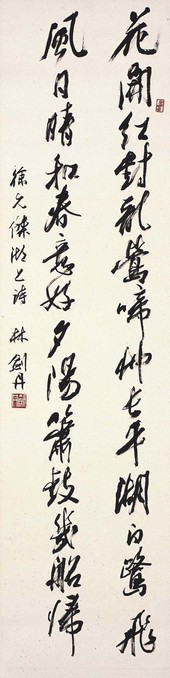 花開紅樹亂鶯啼艸長平湖白鷺飛
風日晴和春意好夕陽簫鼓幾船歸
徐元傑湖上詩 林劍丹